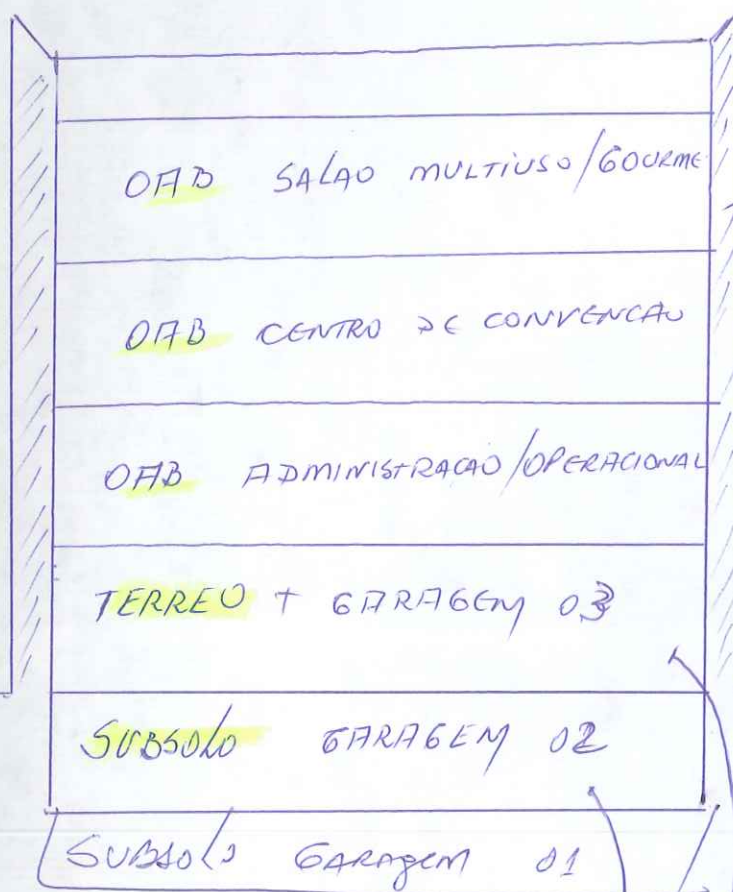 OAB SALAO MULTIUSO/GOURME
OAB CENTRO DE CONVENCAO
OAB ADMINISTRACAO/OPERACIONAL
TERREO + GARAGEM 03
SUBSOLO GARAGEM 02
SUBSOLO GARAGEM 01